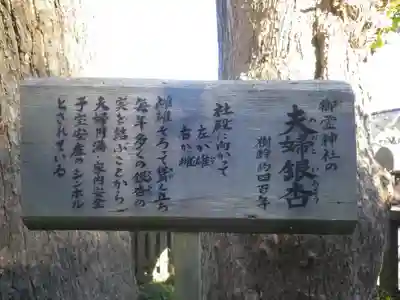 御霊神社の
夫婦銀杏
めおと いちょう
樹齢約四百年
社殿に向かて
左が雄
右が雌
雌雄そろって聳え立ち
毎年多くの銀杏の
実を結ぶことから
夫婦円満・家内安全
子宝安産のシンボル
とされている